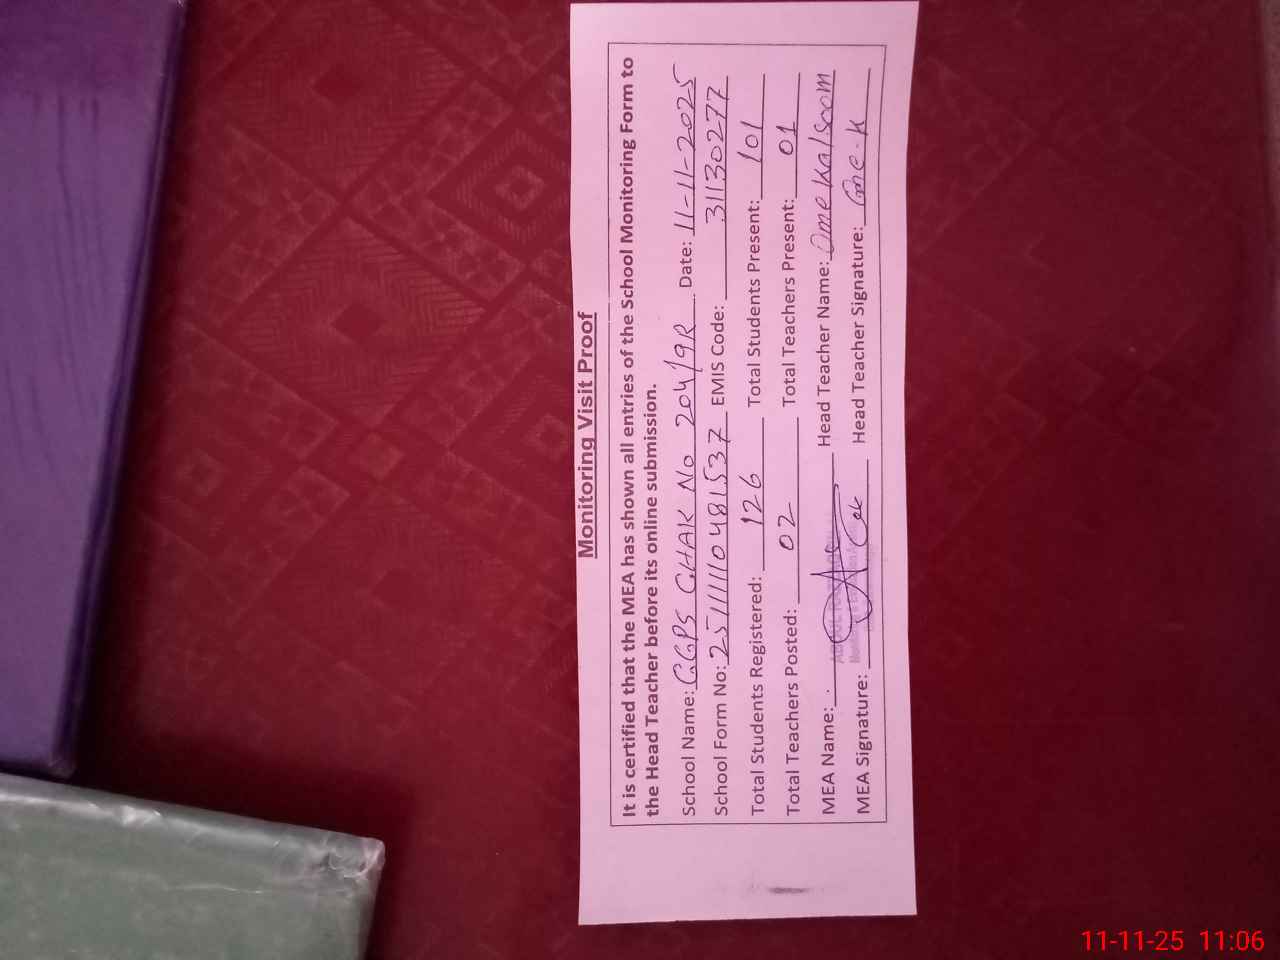 Monitoring Visit Proof
It is certified that the MEA has shown all entries of the School Monitoring Form to
the Head Teacher before its online submission.
School Name: GGPS CHAK No 204/9R Date: 11-11-2025
School Form No: 251111110481537 EMIS Code: 31130277
Total Students Registered: 126 Total Students Present: 101
Total Teachers Posted: 02 Total Teachers Present: 01
MEA Name: Head Teacher Name: Ome Kalsoom
MEA Signature: Head Teacher Signature: Ome-K
11-11-25 11:06